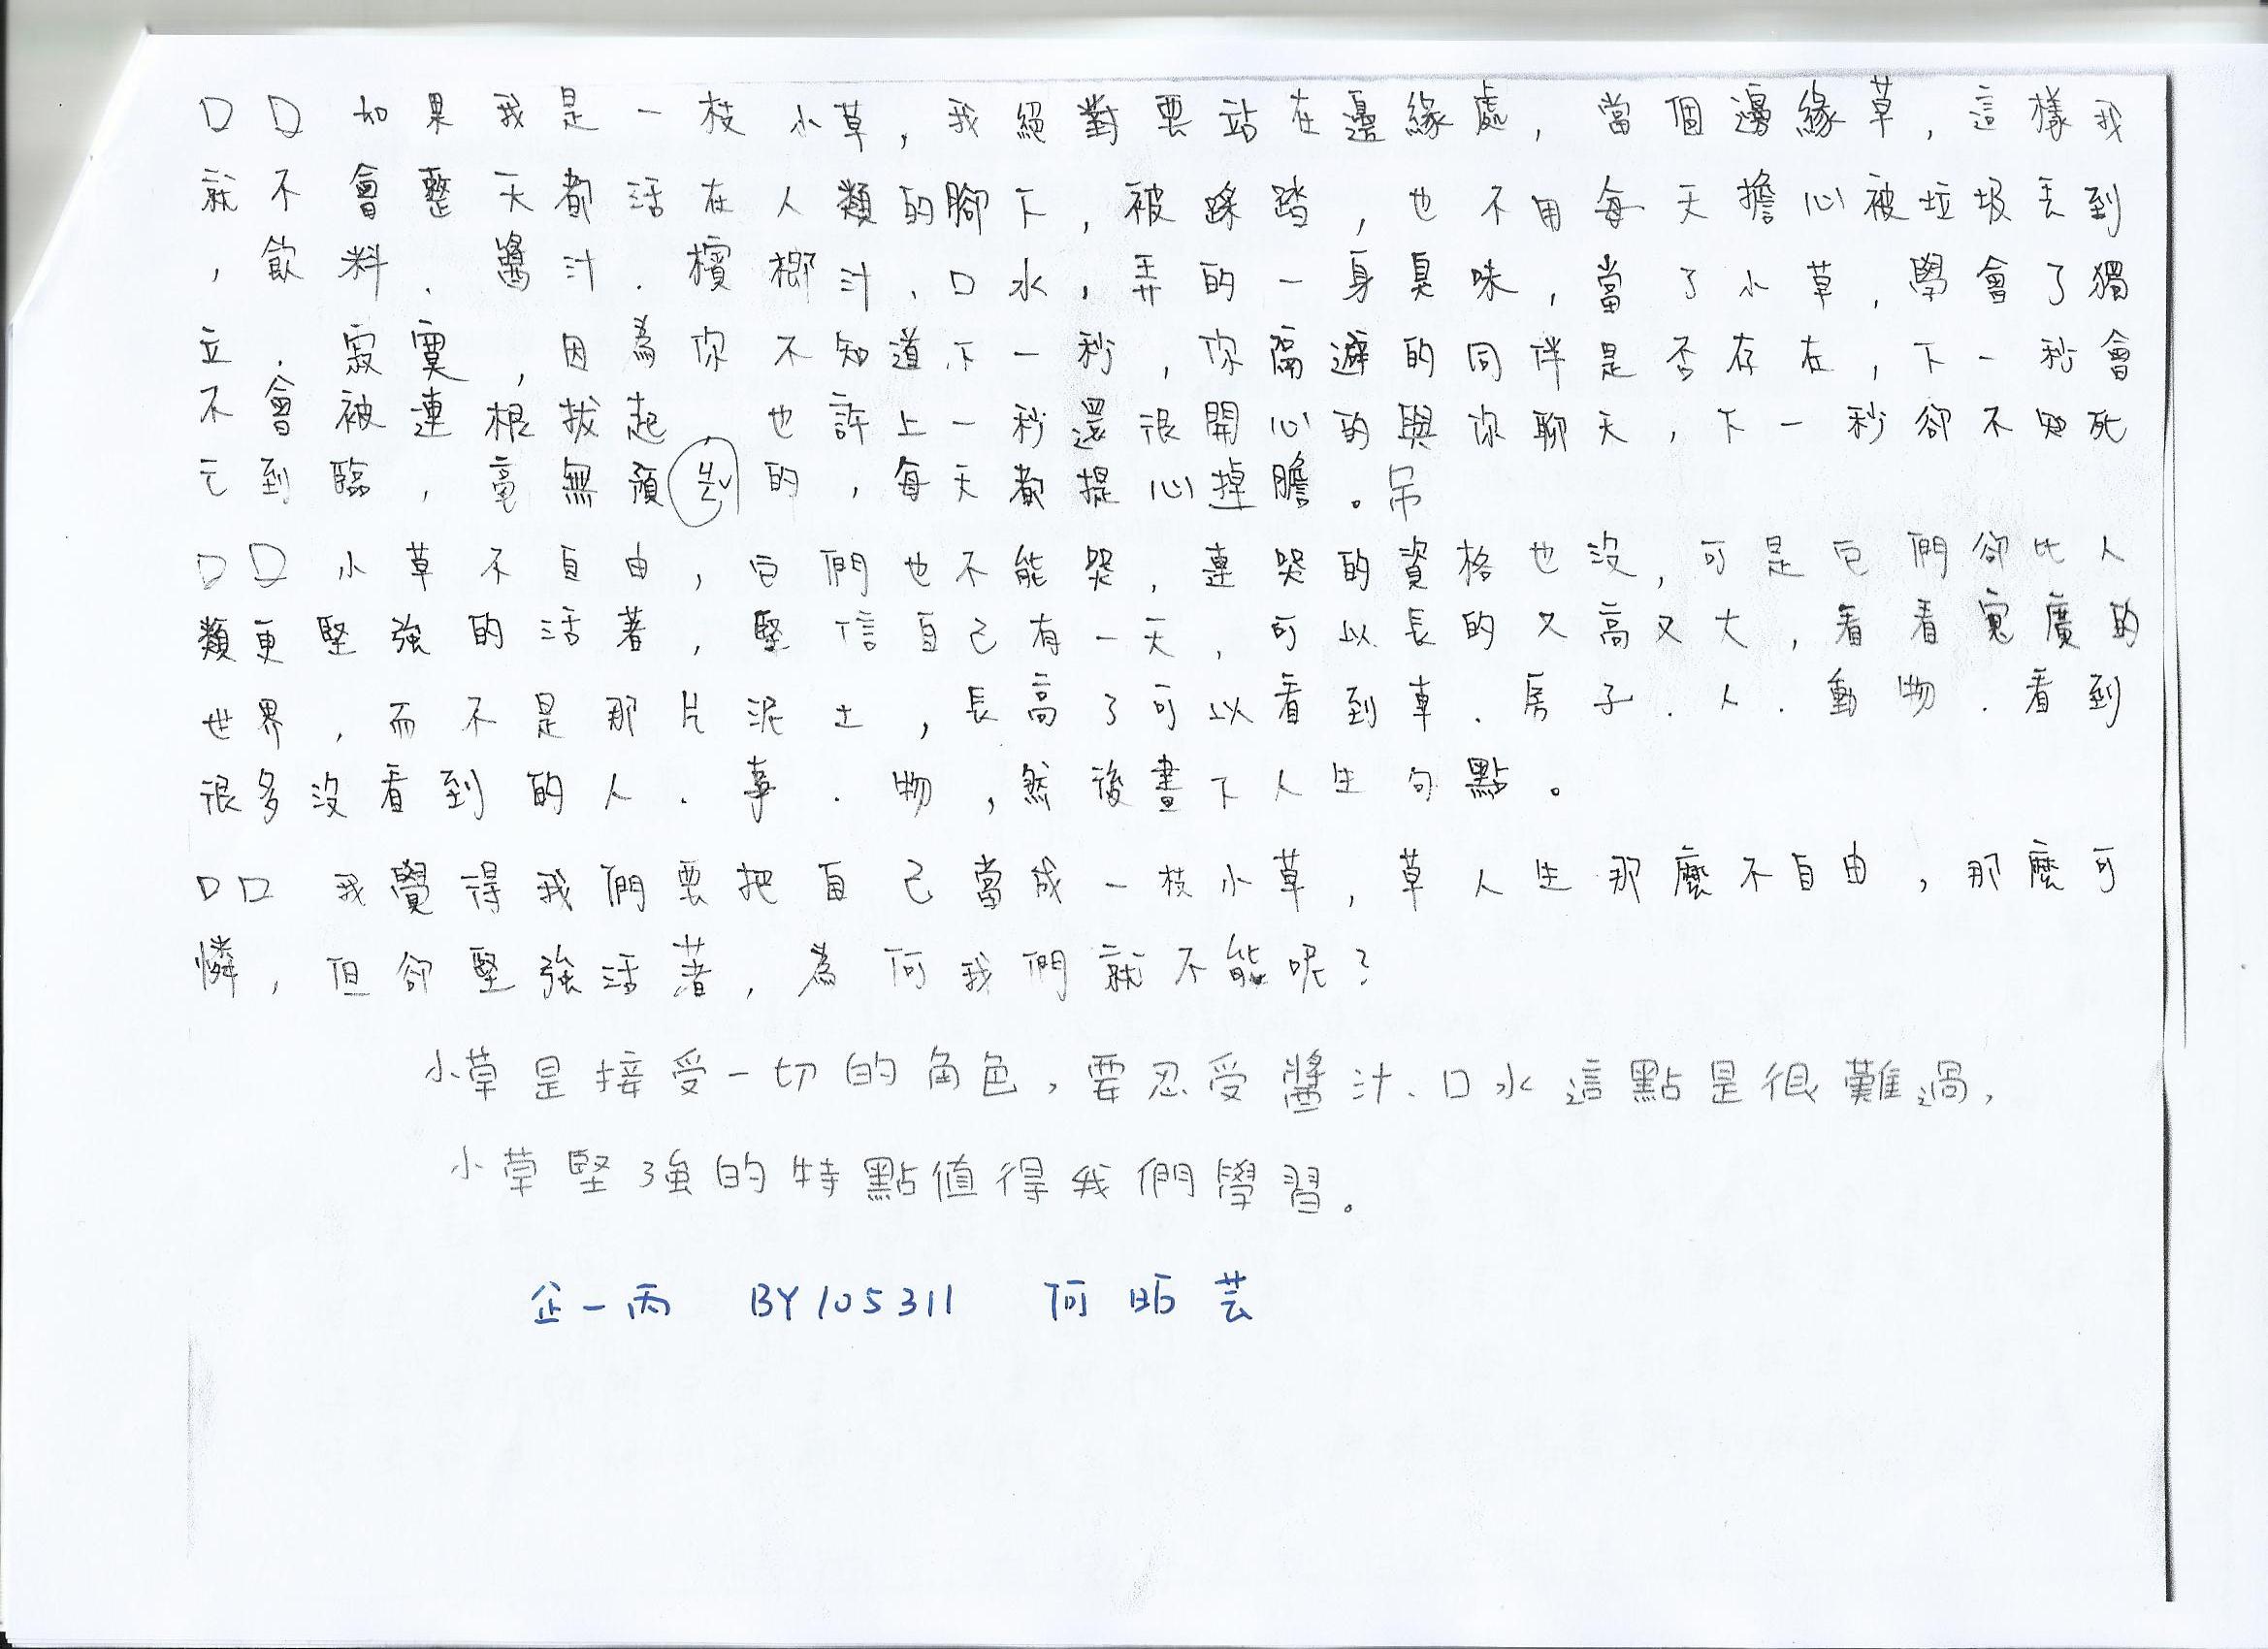 口口如果我是一枝小草，我絕對要站在邊緣處，當個邊緣草，這樣我
就不會整天都活在人類的腳下，被踩踏，也不用每天擔心被垃圾丟到
，飲料、醬汁、檳榔汁、口水，弄的一身臭味，當了小草，學會了獨
立、寂寞，因為你不知道下一秒，你隔避的同伴是否存在，下一秒會
不會被連根拔起，也許上一秒還很開心的與你聊天，下一秒卻不知死
亡到臨，毫無預的，每天都提心掉膽。吊
口口小草不自由，它們也不能哭，連哭的資格也沒，可是它們卻比人
類更堅強的活著，堅信自己有一天，可以長的又高又大，看看寬廣的
世界，而不是那片泥土，長高了可以看到車、房子、人、動物、看到
很多沒看到的人、事、物，然後畫下人生句點。
口口我覺得我們要把自己當成一枝小草，草人生那麼不自由，那麼可
憐，但卻堅強活著，為何我們就不能呢？
小草是接受一切的角色，要忍受醬汁、口水這點是很難過，
小草堅強的特點值得我們學習。
企一丙 BY105311 何昕芸